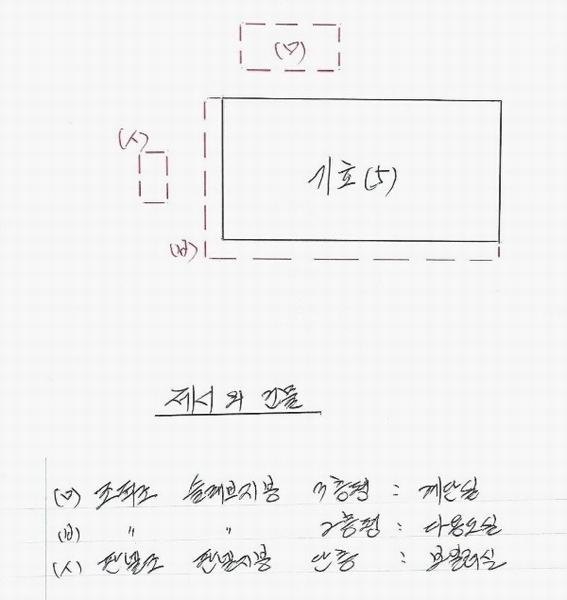 (ㅁ)
(ㅅ)
기호(5)
(ㅂ)
제시외 건물
(ㅁ) 조적조 슬래브지붕 3층평 : 계단실
(ㅂ) " " 2층평 : 다용도실
(ㅅ) 판넬조 판넬지붕 단층 : 보일러실